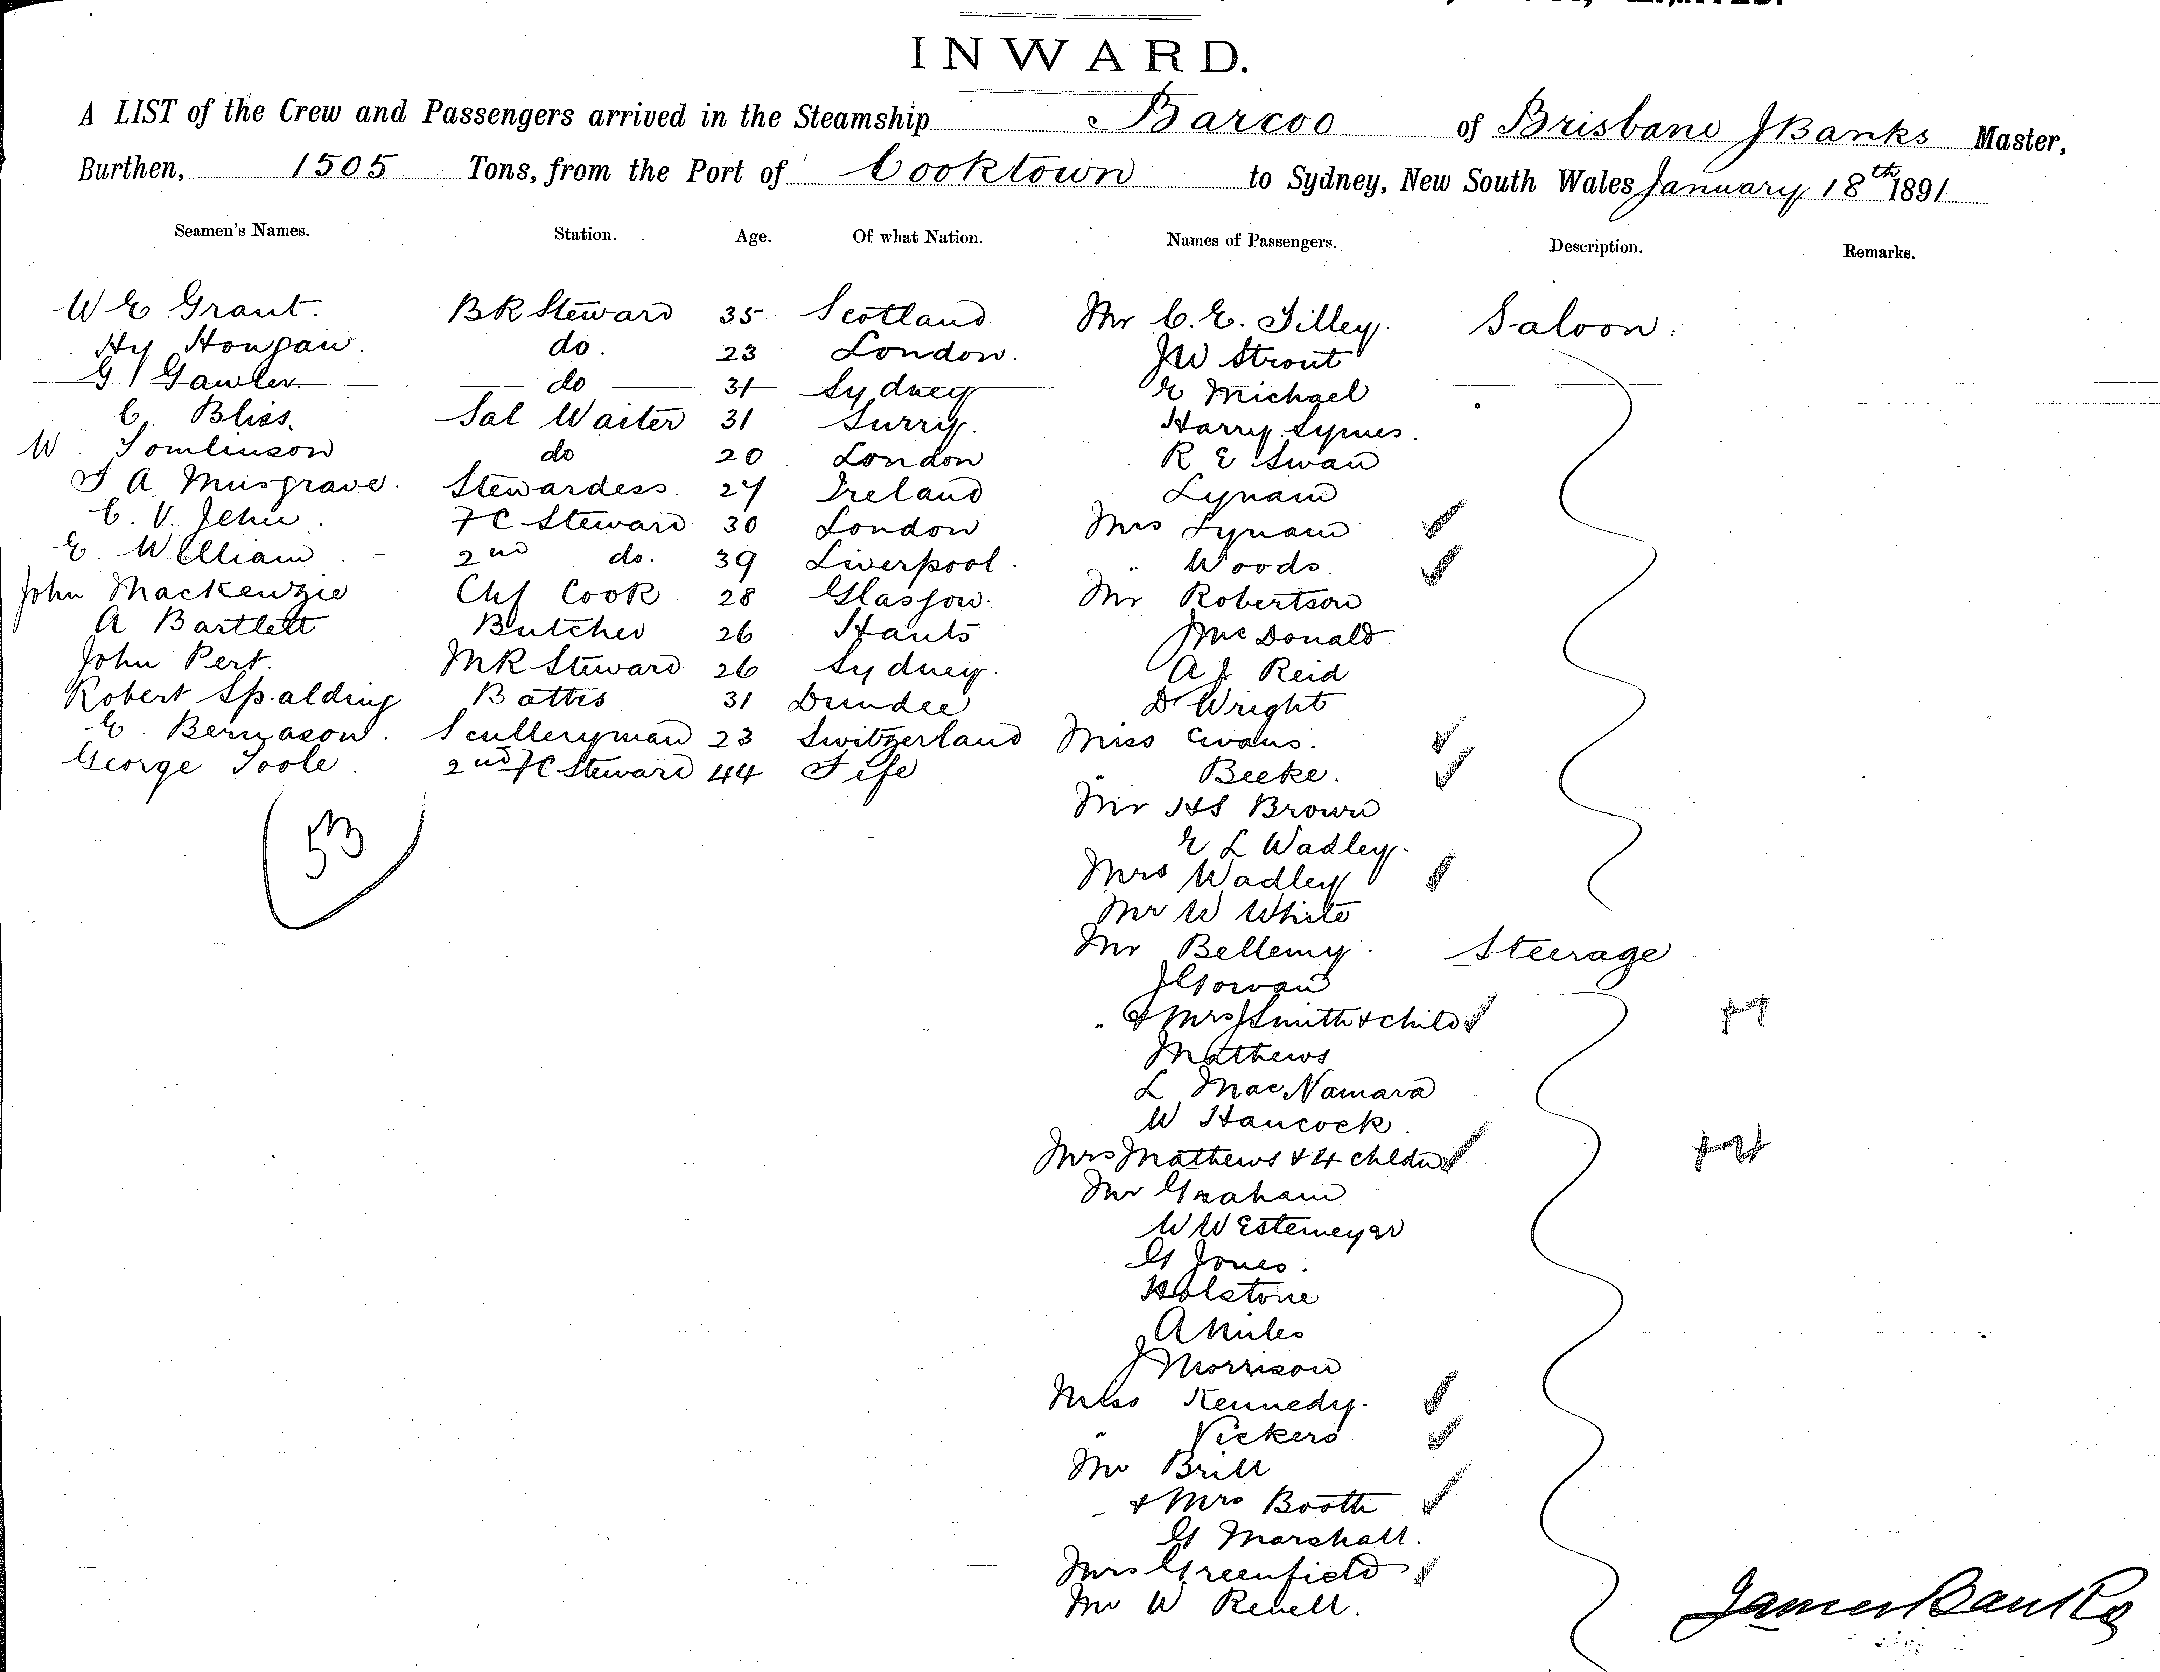 INWARD.
A LIST of the Crew and Passengers arrived in the Steamship Barcoo of Brisbane J Banks Master,
Burthen, 1505 Tons, from the Port of Cooktown to Sydney, New South Wales January 18th 1891
Seamen's Names. Station. Age. Of what Nation. Names of Passengers. Description. Remarks.
W E Grant. BR Steward 35 Scotland Mr C. E. Tilley. Saloon.
Hy Hougau. do. 23 London. JW Strout
G Gawler do 31 Sydney E Michael
C. Bliss. Sal Waiter 31 Surry. Harry Symes.
W Tomlinson do 20 London R E Swan
A Musgrave. Stewardess 27 Ireland Lynam
C. V. Jehu. FC Steward 30 London Mrs Lynam
E. William 2nd do. 39 Liverpool. " Woods
John Mackenzie Chf Cook 28 Glasgow. Mr Robertson
A Bartlett Butcher 26 Hants J McDonald
John Pert. MR Steward 26 Sydney. A J Reid
Robert Spalding Battis 31 Dundee Dr Wright
E. Bernason. Sculleryman 23 Switzerland Miss Evans.
George Toole 2nd FC Steward 44 Fife " Beeke.
53 Mr HS Brown
E L Wadley.
Mrs Wadley
Mr W White
Mr Bellemy. Steerage
J Gowan
" & Mrs J Smith & child
Mathews
L MacNamara
W Hancock
Mrs Mathews & 4 childn
Mr Graham
W Westemeyer
G Jones.
Holstone
A Miles
J Morrison
Miss Kennedy.
" Vickers
Mr Brill
" & Mrs Booth
G Marshall.
Mrs Greenfield
Mr W Revell.
James Banks